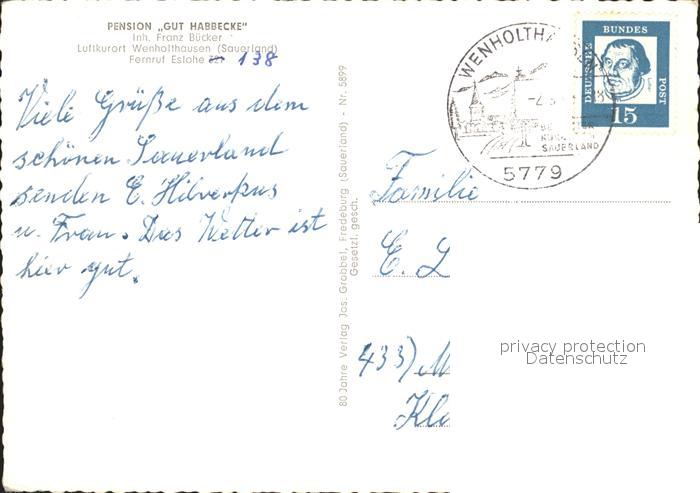 PENSION „GUT HABBECKE"
Inh. Franz Bücker
Luftkurort Wenholthausen (Sauerland)
Fernruf Eslohe 138
Viele Grüße aus dem
schönen Sauerland
senden E. Hilverkus
u. Frau. Das Wetter ist
hier gut.
80 Jahre Verlag Jos. Grobbel, Fredeburg (Sauerland) - Nr. 5899
Gesetzl. gesch.
WENHOLTHA
SAUERLAND
5779
DEUTSCHE
BUNDES
POST
15
Familie
E. L
433) M
Kle
privacy protection
Datenschutz